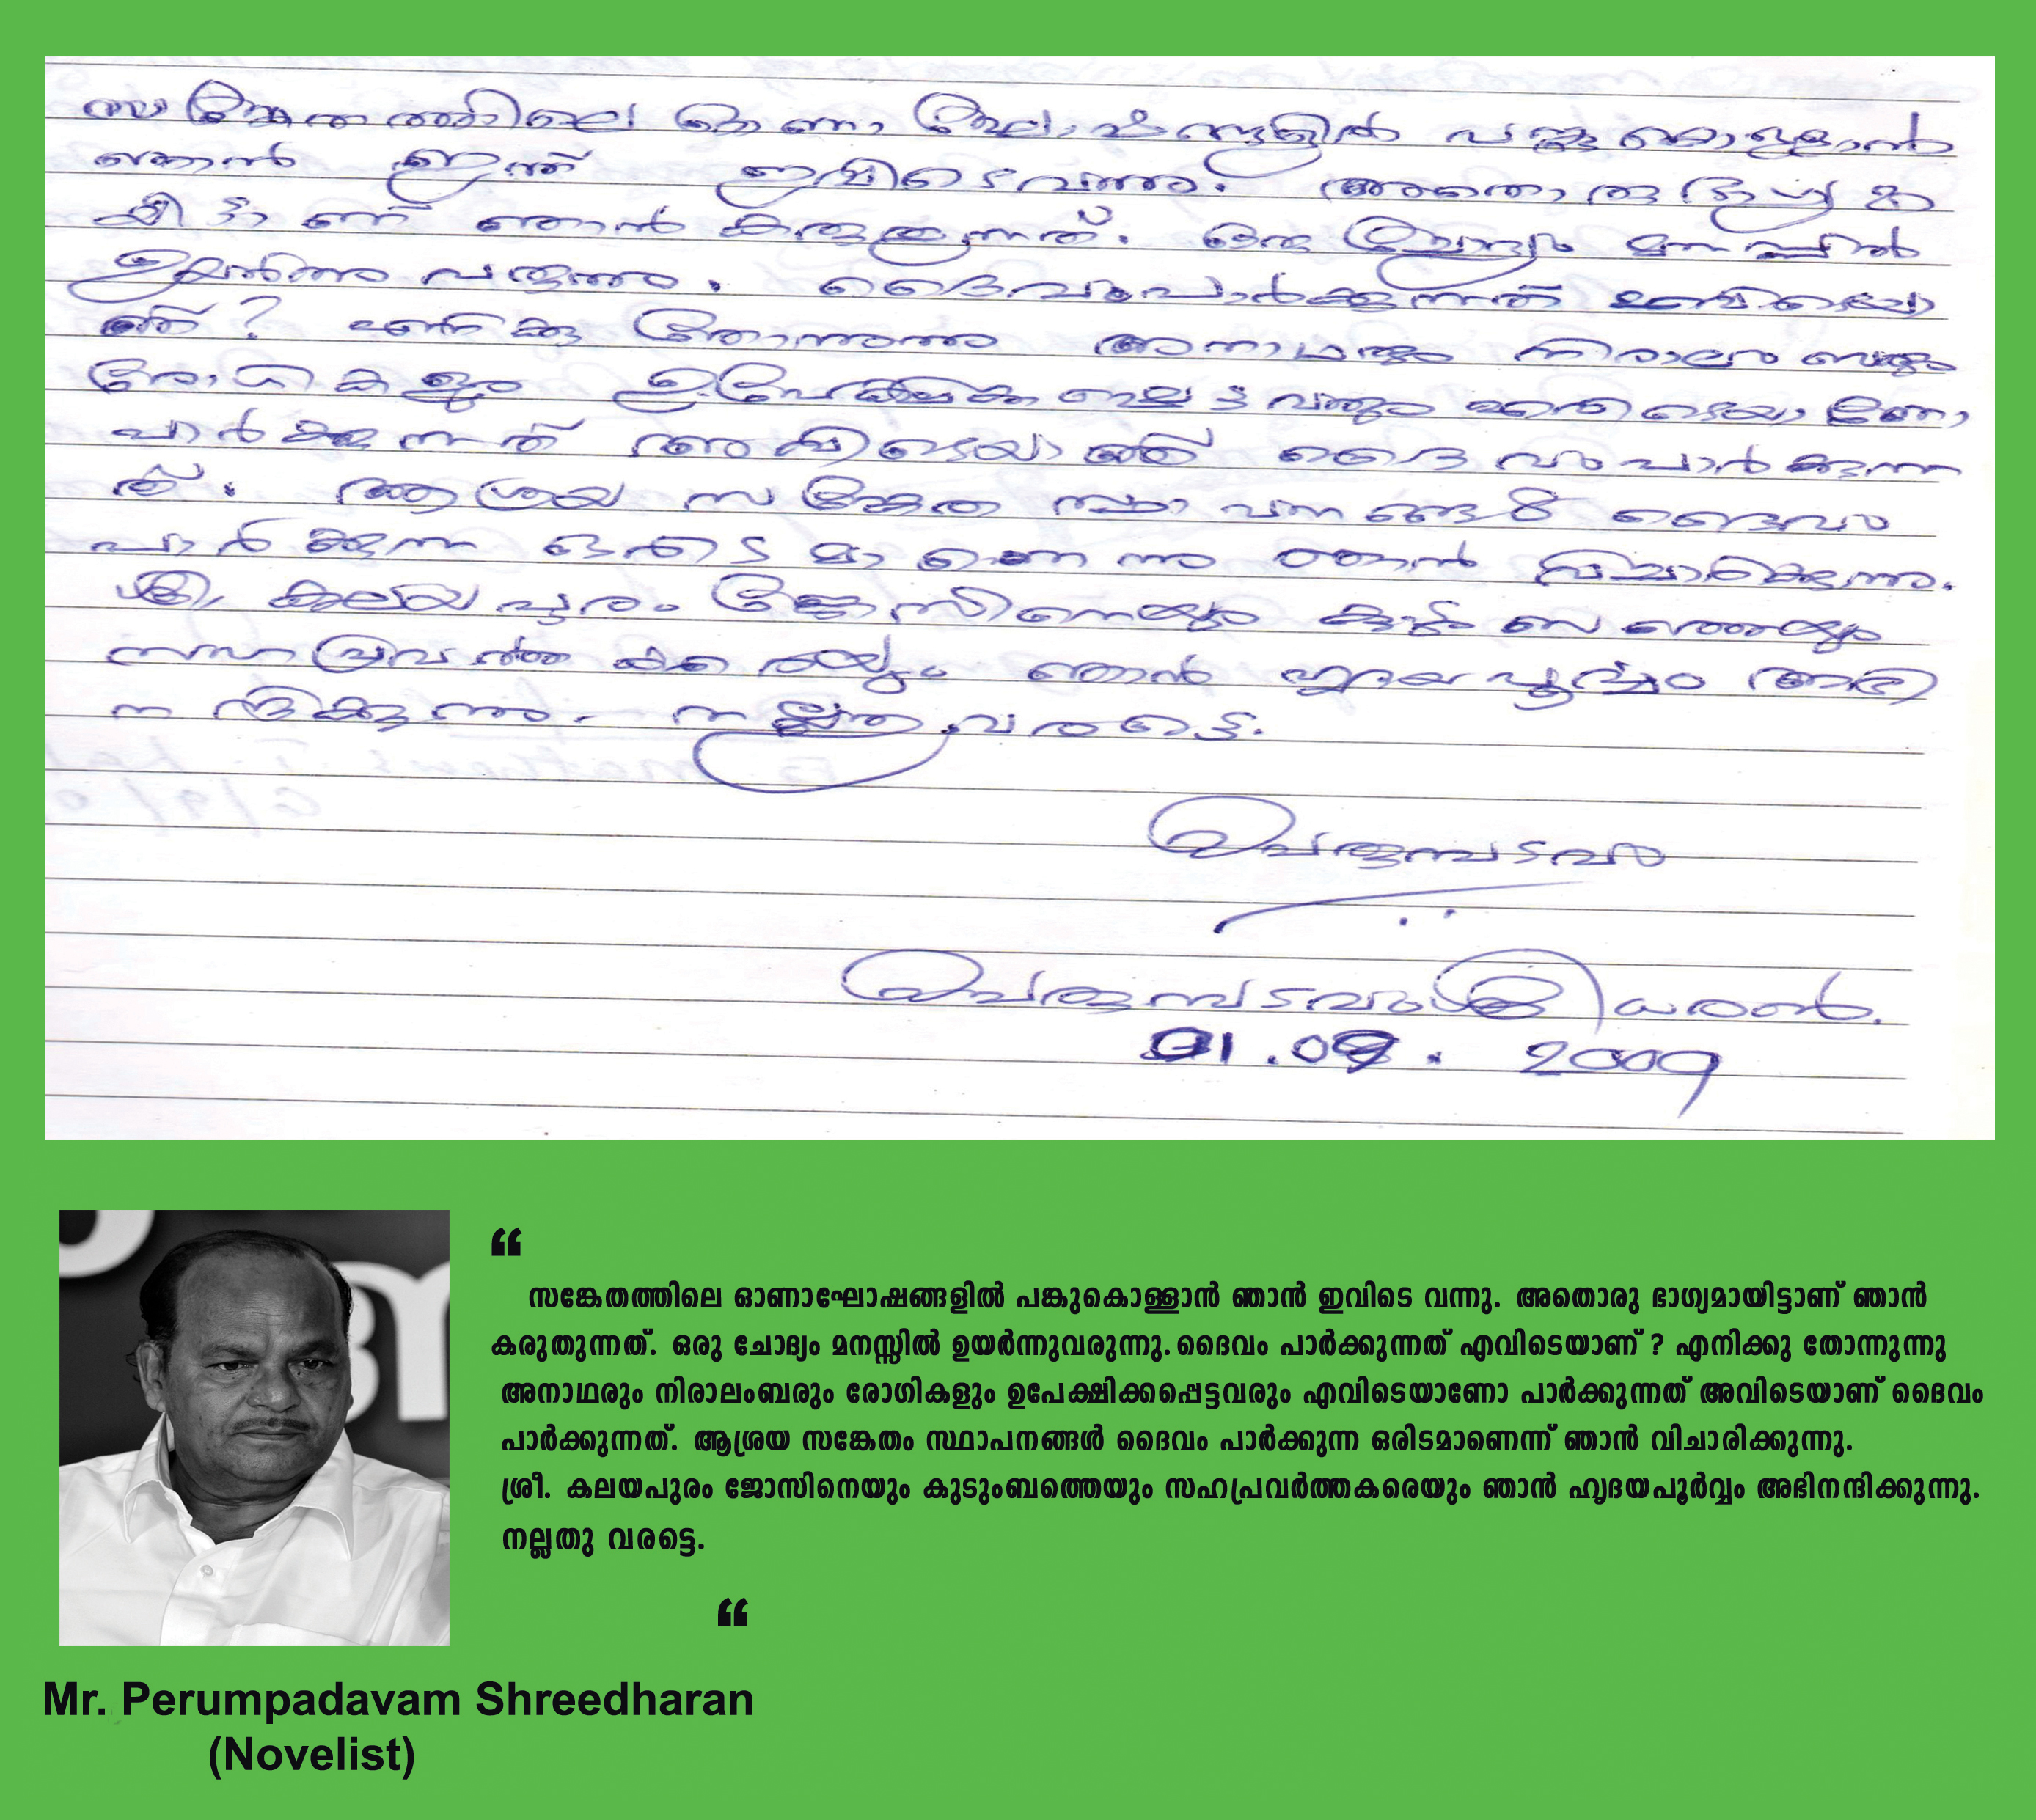 സങ്കേതത്തിലെ ഓണാഘോഷങ്ങളിൽ പങ്കുകൊള്ളാൻ
ഞാൻ ഇന്ന് ഇവിടെ വന്നു. അതൊരു ഭാഗ്യമാ
യിട്ടാണ് ഞാൻ കരുതുന്നത്. ഒരു ചോദ്യം മനസ്സിൽ
ഉയർന്നു വരുന്നു. ദൈവം പാർക്കുന്നത് എവിടെയാ
ണ്? എനിക്കു തോന്നുന്നു അനാഥരും നിരാലംബരും
രോഗികളും ഉപേക്ഷിക്കപ്പെട്ടവരും എവിടെയാണോ
പാർക്കുന്നത് അവിടെയാണ് ദൈവം പാർക്കുന്ന
ത്. ആശ്രയ സങ്കേത സ്ഥാപനങ്ങൾ ദൈവം
പാർക്കുന്ന ഒരിടമാണെന്നു ഞാൻ വിചാരിക്കുന്നു.
ശ്രീ. കലയപുരം ജോസിനെയും കുടുംബത്തെയും
സഹപ്രവർത്തകരെയും ഞാൻ ഹൃദയപൂർവ്വം അഭി
നന്ദിക്കുന്നു. നല്ലതു വരട്ടെ.
പെരുമ്പടവം
പെരുമ്പടവം ശ്രീധരൻ.
01.09.2009
“
സങ്കേതത്തിലെ ഓണാഘോഷങ്ങളിൽ പങ്കുകൊള്ളാൻ ഞാൻ ഇവിടെ വന്നു. അതൊരു ഭാഗ്യമായിട്ടാണ് ഞാൻ
കരുതുന്നത്. ഒരു ചോദ്യം മനസ്സിൽ ഉയർന്നുവരുന്നു. ദൈവം പാർക്കുന്നത് എവിടെയാണ് ? എനിക്കു തോന്നുന്നു
അനാഥരും നിരാലംബരും രോഗികളും ഉപേക്ഷിക്കപ്പെട്ടവരും എവിടെയാണോ പാർക്കുന്നത് അവിടെയാണ് ദൈവം
പാർക്കുന്നത്. ആശ്രയ സങ്കേതം സ്ഥാപനങ്ങൾ ദൈവം പാർക്കുന്ന ഒരിടമാണെന്ന് ഞാൻ വിചാരിക്കുന്നു.
ശ്രീ. കലയപുരം ജോസിനെയും കുടുംബത്തെയും സഹപ്രവർത്തകരെയും ഞാൻ ഹൃദയപൂർവ്വം അഭിനന്ദിക്കുന്നു.
നല്ലതു വരട്ടെ.
“
Mr. Perumpadavam Shreedharan
(Novelist)